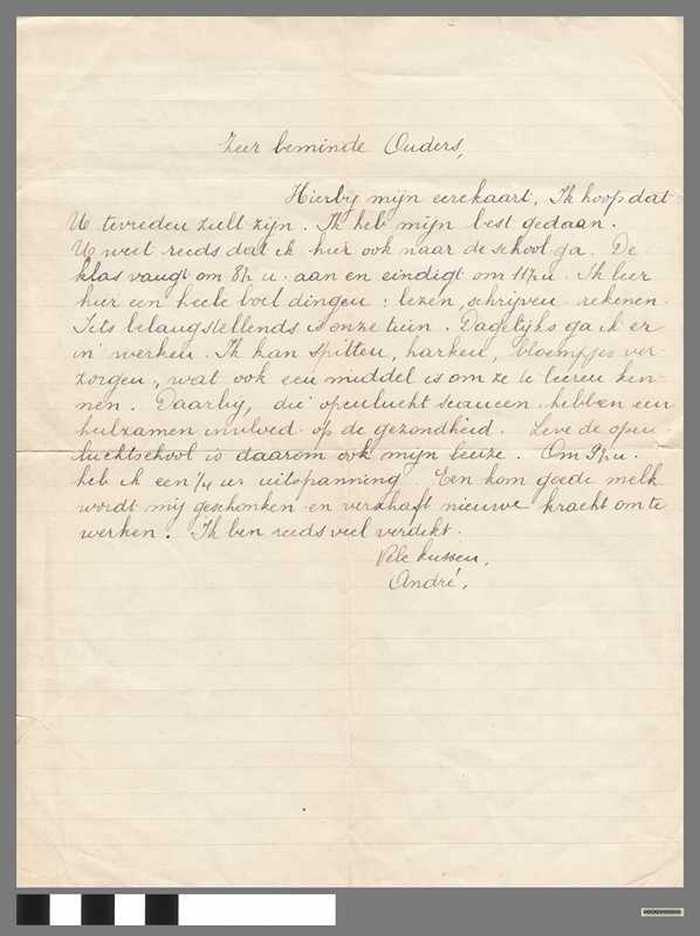 Zeer beminde Ouders,
Hierbij mijn eerekaart. Ik hoop dat
U tevreden zult zijn. Ik heb mijn best gedaan.
U weet reeds dat ik hier ook naar de school ga. De
klas vangt om 8½ u. aan en eindigt om 11½ u. Ik leer
hier een heele boel dingen: lezen, schrijven rekenen.
Iets belangstellends is onze tuin. Dagelijks ga ik er
in werken. Ik kan spitten, harken, bloempjes ver
zorgen, wat ook een middel is om ze te leeren ken
nen. Daarbij, die openlucht seancen hebben een
heilzamen invloed op de gezondheid. Leve de open
luchtschool is daarom ook mijn leuze. Om 9½ u.
heb ik een ¼ ur uitspanning. Een kom goede melk
wordt mij geschonken en verschaft nieuwe kracht om te
werken. Ik ben reeds veel verdikt.
Vele kussen,
André,